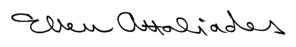 Ellen Attaliades